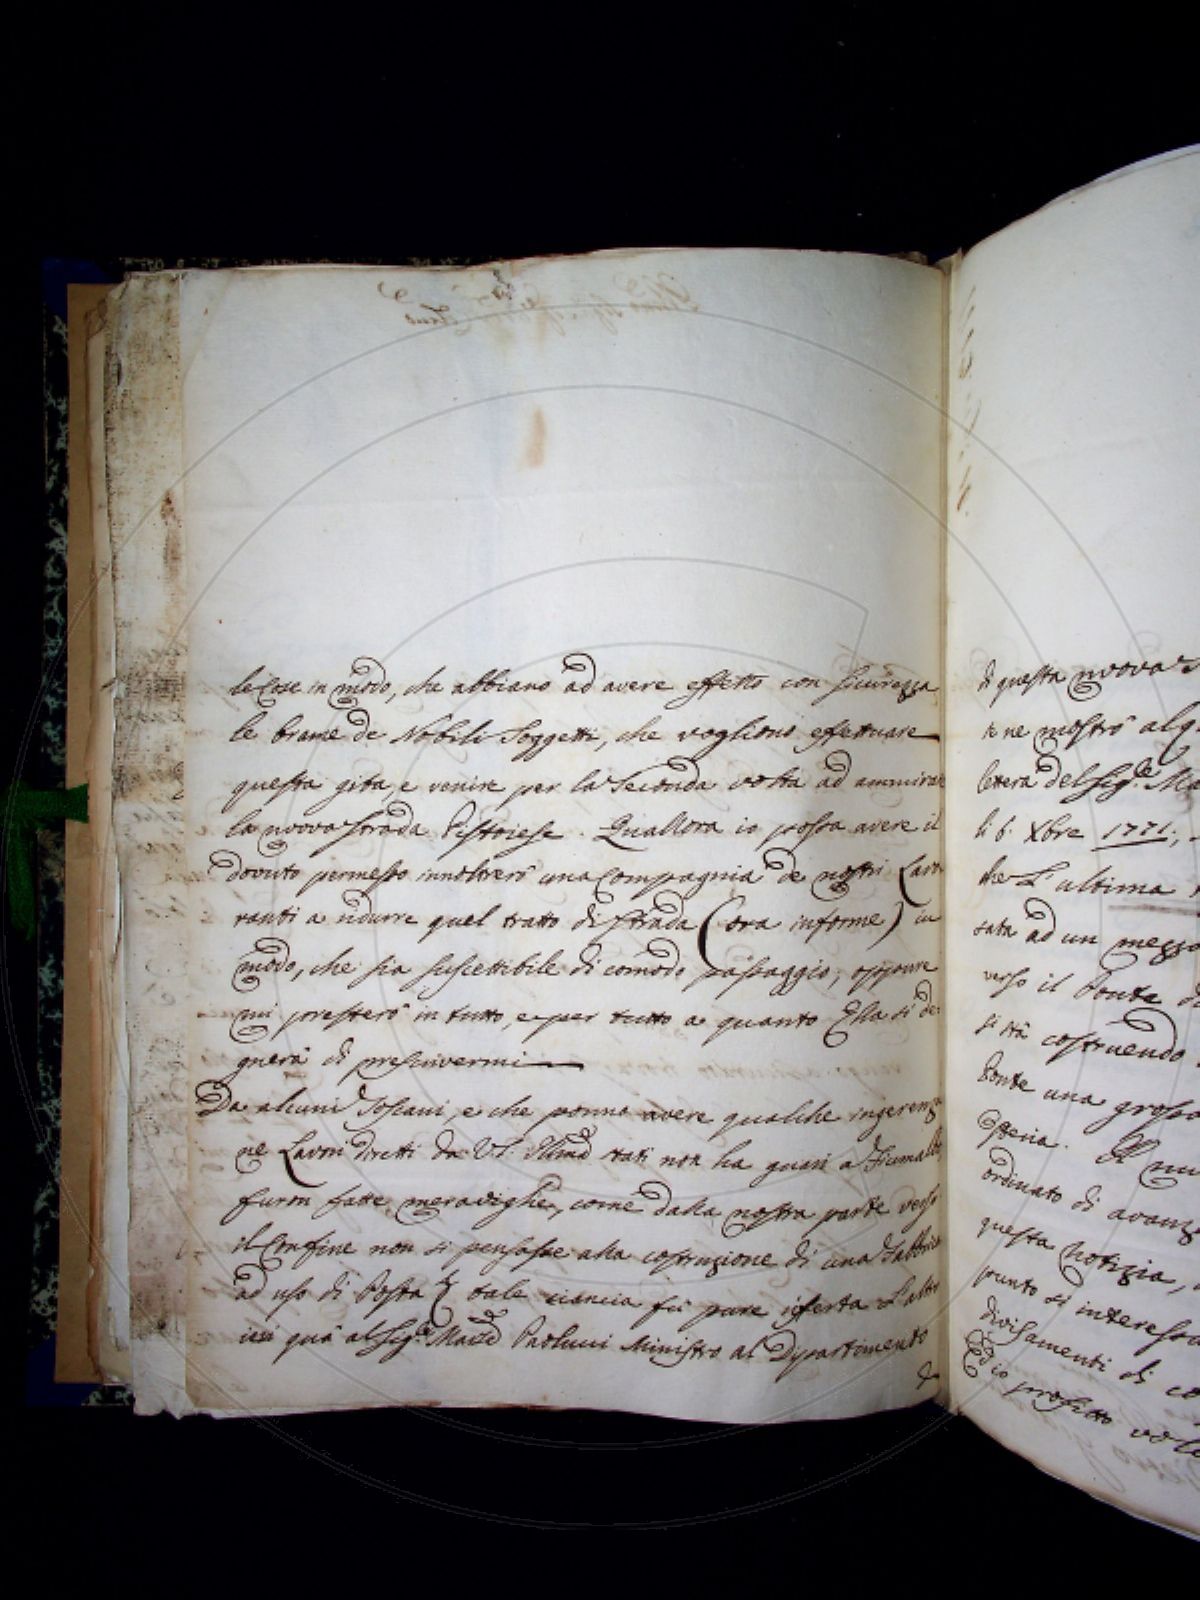 le Cose in modo, che abbiano ad avere effetto con sicurezza
le brame de Nobili Soggetti, che vogliono effettuare
questa gita, e venire per la Seconda volta ad ammirar
la nuova strada Pistoiese. Quallora io possa avere il
dovuto permesso innoltrerò una Compagnia de nostri Lavo-
ranti a ridurre quel tratto di strada (ora informe) in
modo, che sia suscettibile di comodo passaggio; oppure
mi presterò in tutto, e per tutto a quanto Ella si de-
gnerà di prescrivermi
Da alcuni Toscani, e che ponno avere qualche ingerenza
ne Lavori diretti da VS. Illma stati non ha guari a Fiumalbo,
furon fatte meraviglie, come dalla nostra parte verso
il Confine non si pensasse alla costruzione di una Fabbrica
ad uso di Posta tale ciancia fu pure inferta l'altro
ieri quà al Sige. Marse Paolucci Ministro al Dipartimento
di questa nuova
ne mostrò alq
lettera del Sige. Ma
li 6. Xbre 1771;
che L'ultima
sata ad un mezzo
verso il Ponte
si stà costruendo
Ponte una gross
Osteria. Il mi
ordinato di avanz
questa notizia,
punto si interess
divisamenti di co
Ed io profitto vo